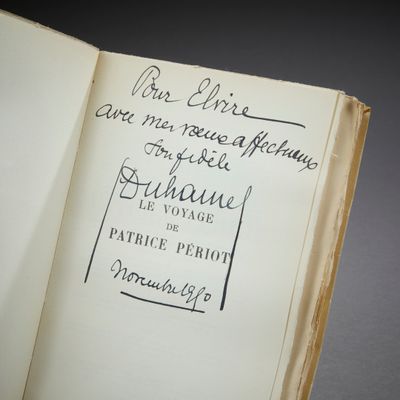 Pour Elvire
avec mes vœux affectueux
son fidèle
Duhamel
LE VOYAGE
DE
PATRICE PÉRIOT
Novembre 1950